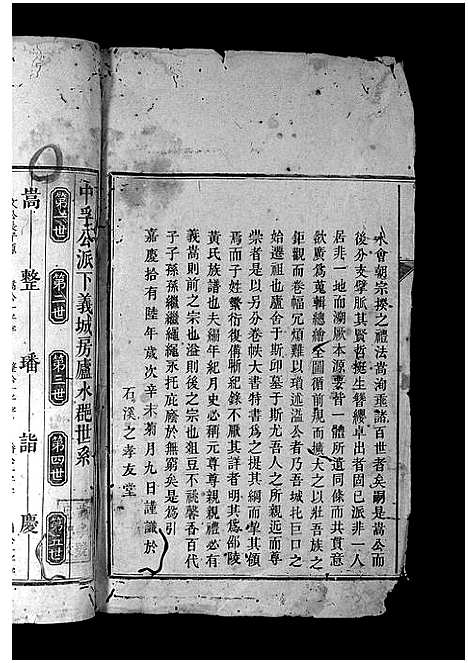 水會朝宗揆之禮法嵩洵垂諸百世者矣嗣是嵩公而
後分支擘脈其賢哲挺生簪纓卓出者固已熟非一人
居非一地而溯厥本源要皆一體所遺同條而共貫意
欲廣為蒐輯總繪全圖循前規而擴大之以壯吾族之
鉅觀而卷幅冗煩難以瑣述溢公者乃吾城圫巨口之
始遷祖也廬舍于斯邱墓于斯尤吾人之所親近而尊
崇者是以另分卷帙大書特書為之提其綱而挈其領
焉而子姓蕃衍復俻晣紀錄不厭其詳者明其為邵陵
黃氏族譜也夫編年紀月史必稱元尊尊親親禮必有
義嵩則前之宗也溢則后之宗也百世不祧馨香百代
子子孫孫繼繼繩繩永托庇廕於無窮矣是為引
嘉慶拾有陸年歲次辛未菊月九日謹識於
石溪之孝友堂
中孚公派下義城房廬水郡世系
第一世 第二世 第三世 第四世 第五世
嵩 整 璠 詣 慶